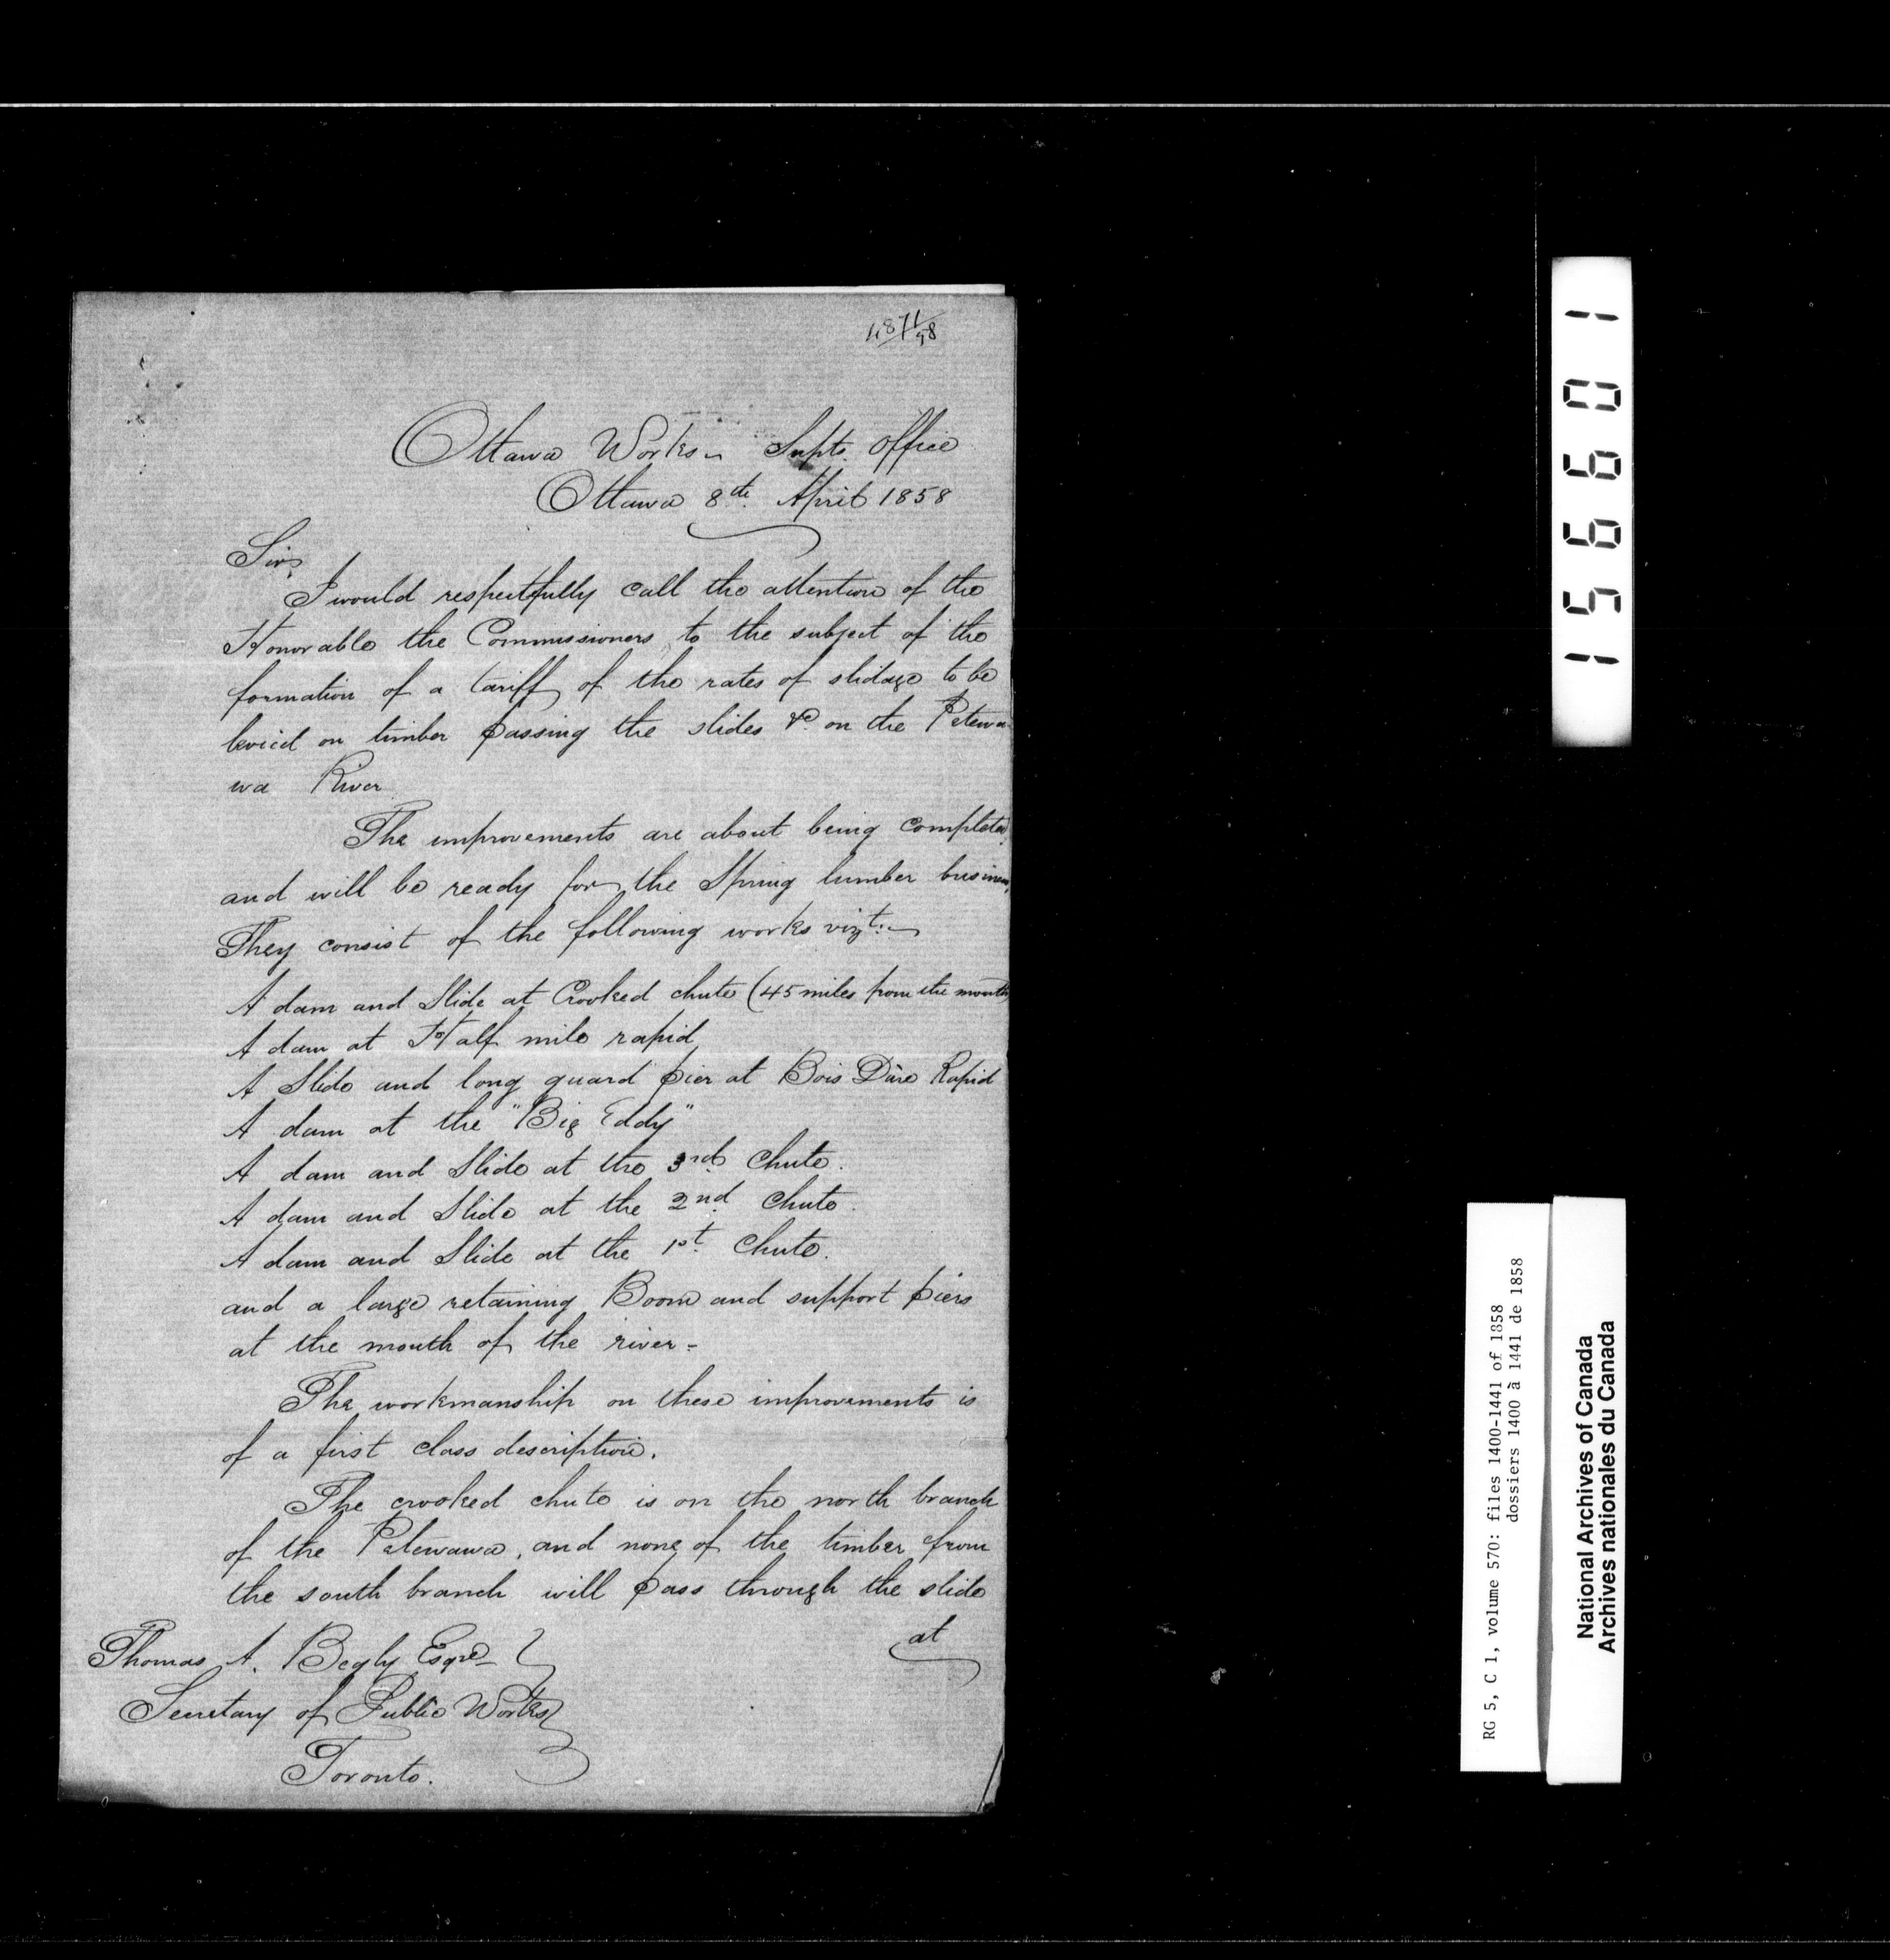 4871/58
Ottawa Works - Supts. Office
Ottawa 8th. April 1858
Sir,
I would respectfully call the attention of the
Honorable the Commissioners, to the subject of the
formation of a tariff of the rates of slidage to be
levied on timber passing the slides &c. on the Petewa-
wa River
The improvements are about being completed,
and will be ready for the Spring lumber business,
They consist of the following works vizt:-
A dam and Slide at Crooked chute (45 miles from the mouth)
A dam at Half mile rapid
A Slide and long guard pier at Bois Dûre Rapid
A dam at the "Big Eddy"
A dam and Slide at the 3rd. Chute.
A dam and Slide at the 2nd. Chute.
A dam and Slide at the 1st. Chute.
and a large retaining Boom and support piers
at the mouth of the river -
The workmanship on these improvements is
of a first class description.
The crooked chute is on the north branch
of the Petewawa, and none of the timber from
the south branch will pass through the slide
at
Thomas A. Begly Esqre
Secretary of Public Works
Toronto.
156601
RG 5, C 1, volume 570: files 1400-1441 of 1858
dossiers 1400 à 1441 de 1858
National Archives of Canada
Archives nationales du Canada